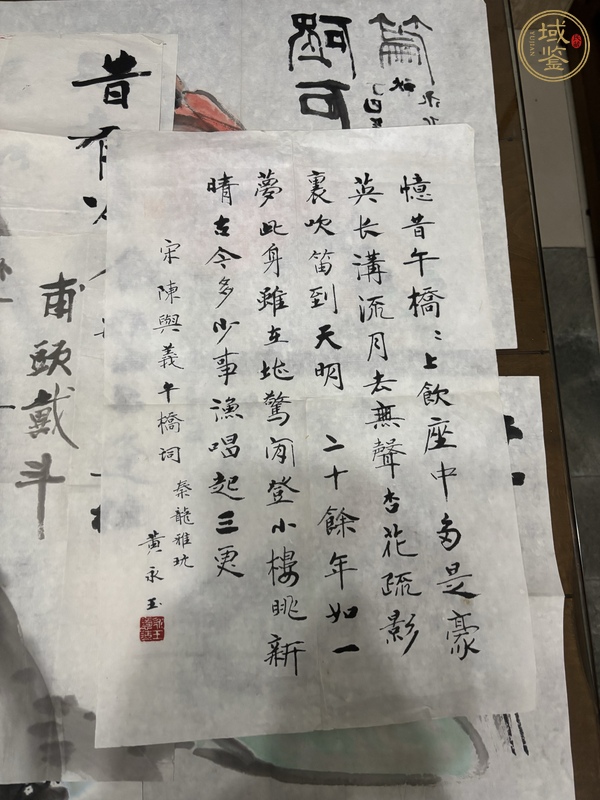 域鉴
YUJIAN
憶昔午橋〻上飲座中多是豪
英长溝流月去無聲杏花疏影
裏吹笛到天明 二十餘年如一
夢此身雖在堪驚閒登小樓眺新
晴古今多少事漁唱起三更
宋陳與義午橋詞
秦龍雅玩
黄永玉
昔有
甫頭戴斗
可